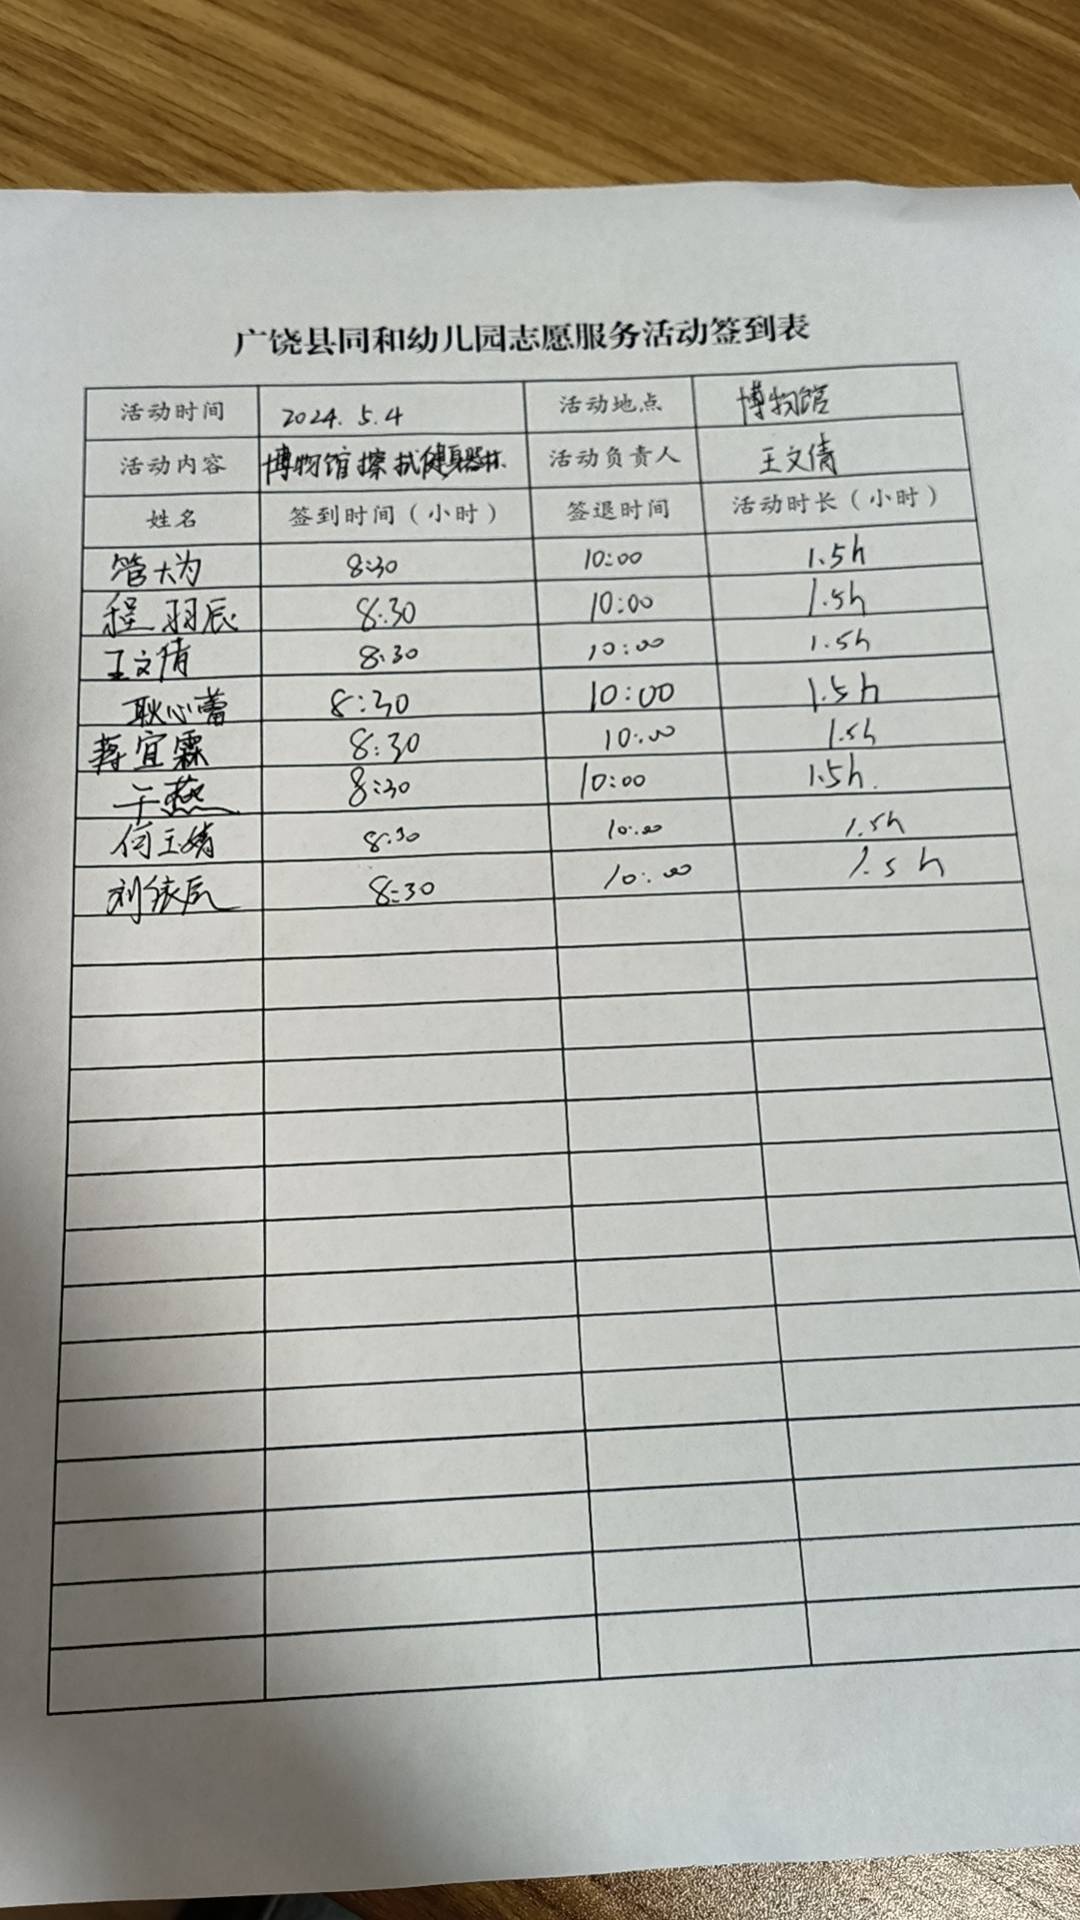 广饶县同和幼儿园志愿服务活动签到表
活动时间 2024.5.4 活动地点 博物馆
活动内容 博物馆擦拭健身器材 活动负责人 王文倩
姓名 签到时间（小时） 签退时间 活动时长（小时）
管大为 8:30 10:00 1.5h
程羽辰 8:30 10:00 1.5h
王文倩 8:30 10:00 1.5h
耿心蕾 8:30 10:00 1.5h
蒋宜霖 8:30 10:00 1.5h
于燕 8:30 10:00 1.5h
何玉婧 8:30 10:00 1.5h
刘依辰 8:30 10:00 1.5h